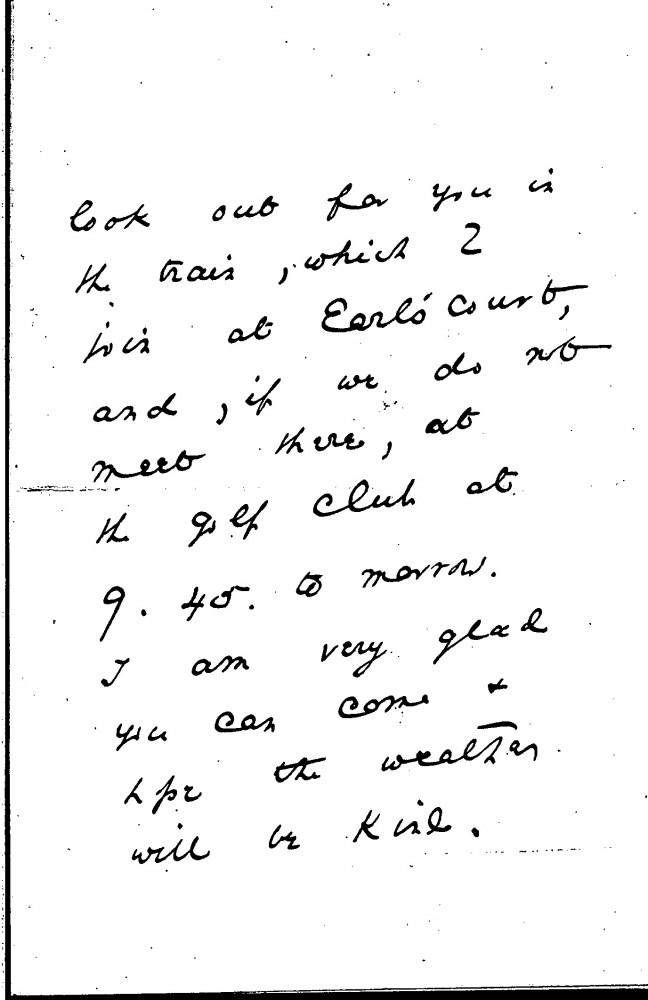 look out for you in
the train, which I
join at Earl's Court,
and, if we do not
meet there, at
the golf club at
9.45. to morrow.
I am very glad
you can come &
hope the weather
will be kind.